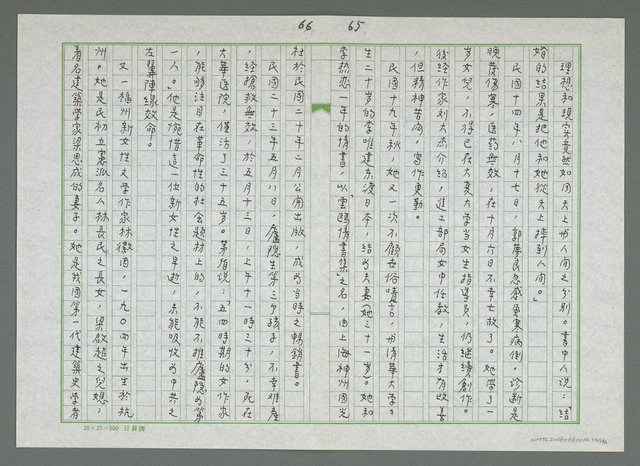 66 65
理想和現實竟然如同天上和人間之分別。書中人說:結
婚的結果是把他和她從天上摔到人間。」
民國十四年八月十七日,郭夢良忽感風寒病倒,診斷是
晚發傷寒,医药無效,在十月六日不幸亡故了。她帶了一
歲女兒,不得已在大夏大学当女生指導員,仍継続創作。
後经作家刘大杰介紹,進工部局女中任教,生活才有改善
,但精神苦悶,寫作更勤。
民國十九年秋,她又一次不顧世俗嘖言,和清華大学々
生二十岁的李唯建东渡日本,結为夫妻(她三十一岁)。她和
李热恋一年的情書,以「雲鷗情書集」之名,由上海神州國光
社於民國二十年二月公開出版,成为当時之暢銷書。
民國二十三年五月八日,廬隐生第三个孩子,不幸难產
,经搶救無效,於五月十三日,上午十一時三十分,死在
大華医院,僅活了三十五岁。茅盾说:「五四時期的女作家
,能够注目在革命性的社会题材上的,不能不推廬隐为第
一人。」他是惋惜這一位新女性之早逝,未能吸收为中共之
左翼陣線效命。
又一福州新女性文学作家林徽因,一九〇四年出生於杭
州。她是民初立憲派名人林長民之長女,梁啟超之兒媳,
著名建築学家梁思成的妻子。她是我國第一代建築史学者
20×25=500 日昇牌